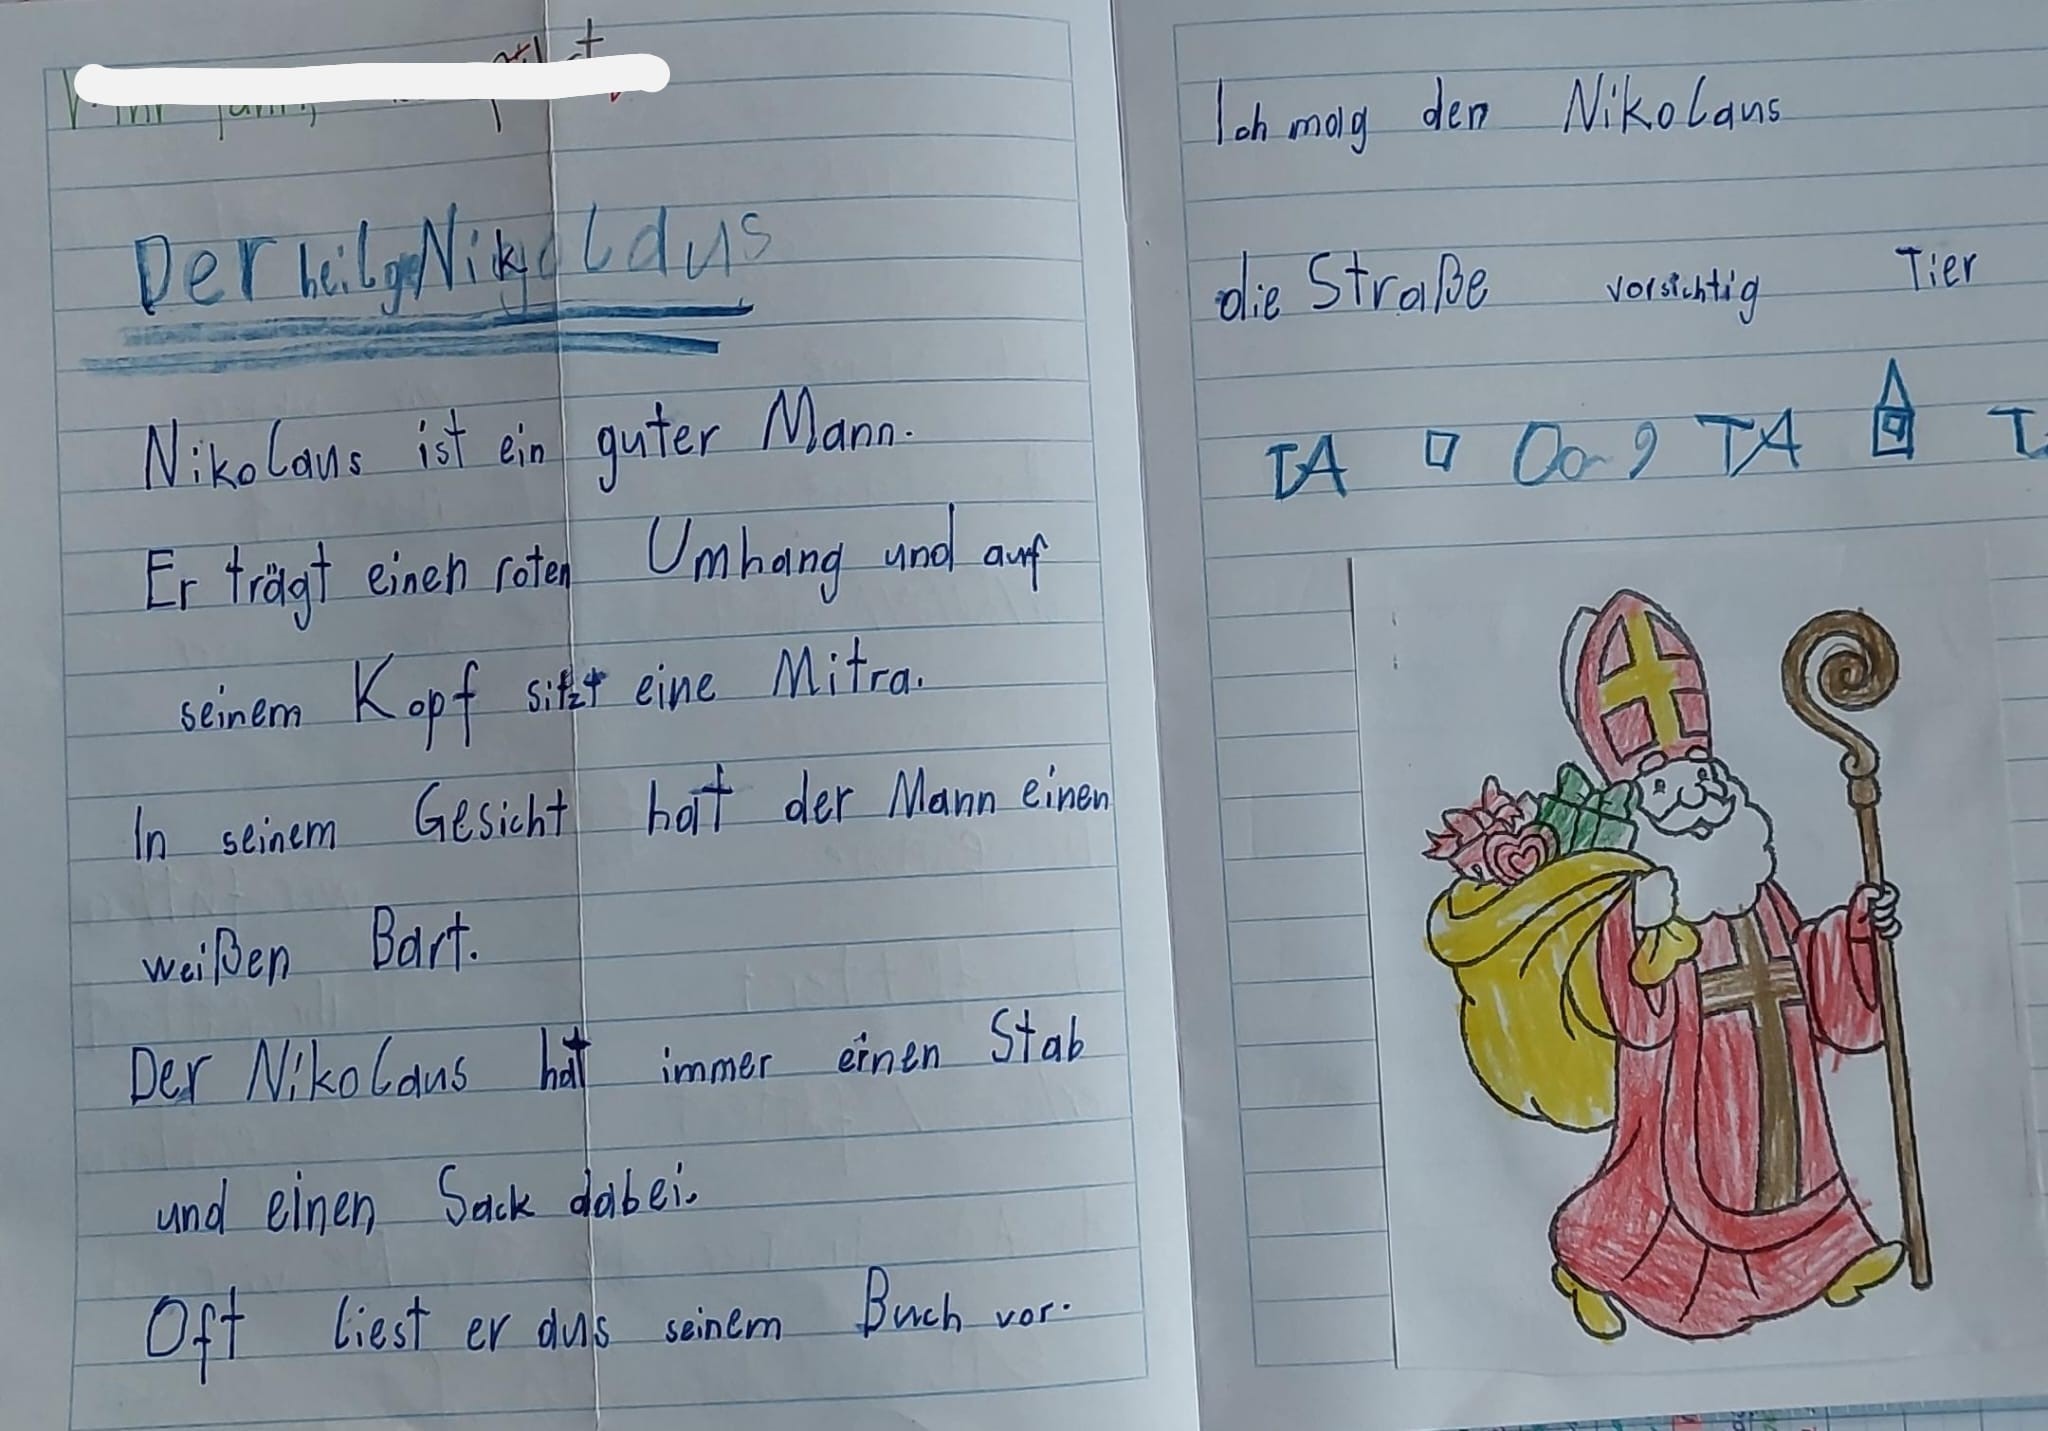 Der heilge Nikolaus
Nikolaus ist ein guter Mann.
Er trägt einen roten Umhang und auf
seinem Kopf sitzt eine Mitra.
In seinem Gesicht hat der Mann einen
weißen Bart.
Der Nikolaus hat immer einen Stab
und einen Sack dabei.
Oft liest er aus seinem Buch vor.
Ich mag den Nikolaus
die Straße vorsichtig Tier
TA TA